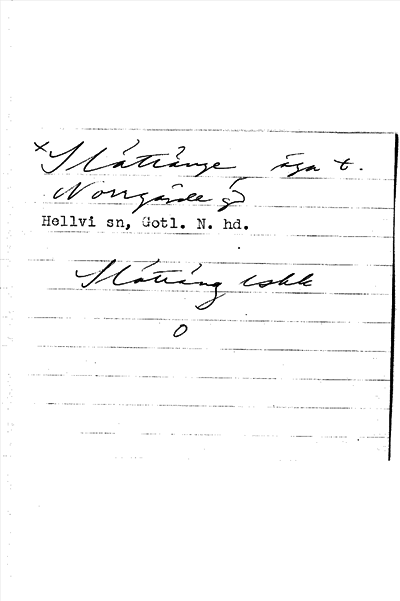 x Slåtiänge äga t.
Norrgårde g
Hellvi sn, Gotl. N. hd.
Slåtiäng
O